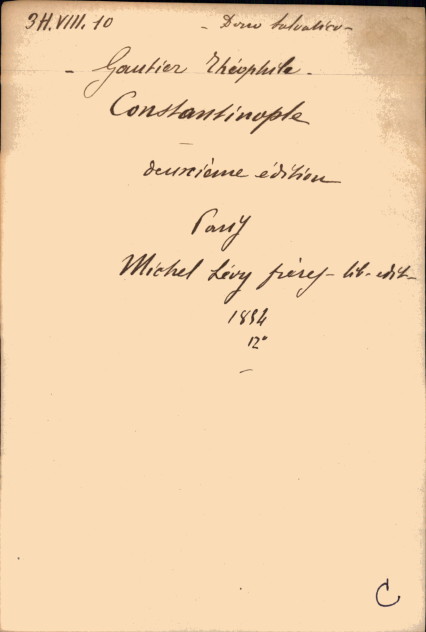 3H.VIII.10 - Dono Salvatico -
- Gautier Théophile -
Constantinople
deuxième édition
Paris
Michel Lévy frères - lib - edit -
1854
12°
C